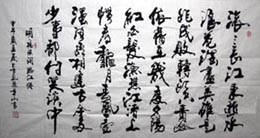 滚々長江東逝水
浪花淘盡英雄是
非成敗轉頭空青山
依舊在幾度夕陽
紅白髮漁樵江渚上
慣看秋月春風一
壺濁酒喜相逢古今多
少事都付笑談中
明楊慎詞臨江仙